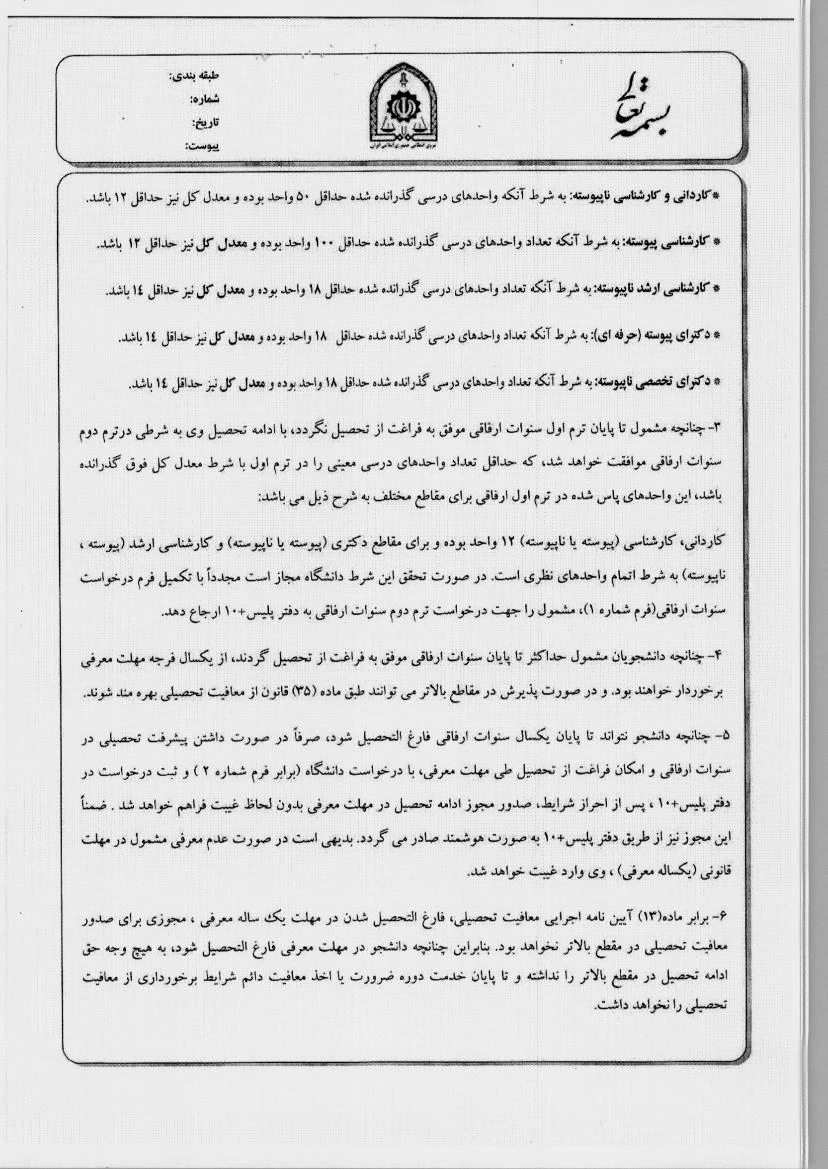 بسمه تعالی
نیروی انتظامی جمهوری اسلامی ایران
طبقه بندی:
شماره:
تاریخ:
پیوست:
*کاردانی و کارشناسی ناپیوسته: به شرط آنکه واحدهای درسی گذرانده شده حداقل ۵۰ واحد بوده و معدل کل نیز حداقل ۱۲ باشد.
* کارشناسی پیوسته: به شرط آنکه تعداد واحدهای درسی گذرانده شده حداقل ۱۰۰ واحد بوده و معدل کل نیز حداقل ۱۲ باشد.
* کارشناسی ارشد ناپیوسته: به شرط آنکه تعداد واحدهای درسی گذرانده شده حداقل ۱۸ واحد بوده و معدل کل نیز حداقل ۱۴ باشد.
* دکترای پیوسته (حرفه ای): به شرط آنکه تعداد واحدهای درسی گذرانده شده حداقل ۱۸ واحد بوده و معدل کل نیز حداقل ۱۴ باشد.
* دکترای تخصصی ناپیوسته: به شرط آنکه تعداد واحدهای درسی گذرانده شده حداقل ۱۸ واحد بوده و معدل کل نیز حداقل ۱٤ باشد.
۳- چنانچه مشمول تا پایان ترم اول سنوات ارفاقی موفق به فراغت از تحصیل نگردد، با ادامه تحصیل وی به شرطی درترم دوم
سنوات ارفاقی موافقت خواهد شد، که حداقل تعداد واحدهای درسی معینی را در ترم اول با شرط معدل کل فوق گذرانده
باشد، این واحدهای پاس شده در ترم اول ارفاقی برای مقاطع مختلف به شرح ذیل می باشد:
کاردانی، کارشناسی (پیوسته یا ناپیوسته) ۱۲ واحد بوده و برای مقاطع دکتری (پیوسته یا ناپیوسته) و کارشناسی ارشد (پیوسته ،
ناپیوسته) به شرط اتمام واحدهای نظری است. در صورت تحقق این شرط دانشگاه مجاز است مجدداً با تکمیل فرم درخواست
سنوات ارفاقی(فرم شماره ۱)، مشمول را جهت درخواست ترم دوم سنوات ارفاقی به دفتر پلیس+۱۰ ارجاع دهد.
۴- چنانچه دانشجویان مشمول حداکثر تا پایان سنوات ارفاقی موفق به فراغت از تحصیل گردند، از یکسال فرجه مهلت معرفی
برخوردار خواهند بود. و در صورت پذیرش در مقاطع بالاتر می توانند طبق ماده (۳۵) قانون از معافیت تحصیلی بهره مند شوند.
۵- چنانچه دانشجو نتواند تا پایان یکسال سنوات ارفاقی فارغ التحصیل شود، صرفاً در صورت داشتن پیشرفت تحصیلی در
سنوات ارفاقی و امکان فراغت از تحصیل طی مهلت معرفی، با درخواست دانشگاه (برابر فرم شماره ۲ ) و ثبت درخواست در
دفتر پلیس+۱۰ ، پس از احراز شرایط، صدور مجوز ادامه تحصیل در مهلت معرفی بدون لحاظ غیبت فراهم خواهد شد . ضمناً
این مجوز نیز از طریق دفتر پلیس+۱۰ به صورت هوشمند صادر می گردد. بدیهی است در صورت عدم معرفی مشمول در مهلت
قانونی (یکساله معرفی) ، وی وارد غیبت خواهد شد.
۶- برابر ماده(۱۳) آیین نامه اجرایی معافیت تحصیلی، فارغ التحصیل شدن در مهلت یک ساله معرفی ، مجوزی برای صدور
معافیت تحصیلی در مقطع بالاتر نخواهد بود. بنابراین چنانچه دانشجو در مهلت معرفی فارغ التحصیل شود، به هیچ وجه حق
ادامه تحصیل در مقطع بالاتر را نداشته و تا پایان خدمت دوره ضرورت یا اخذ معافیت دائم شرایط برخورداری از معافیت
تحصیلی را نخواهد داشت.